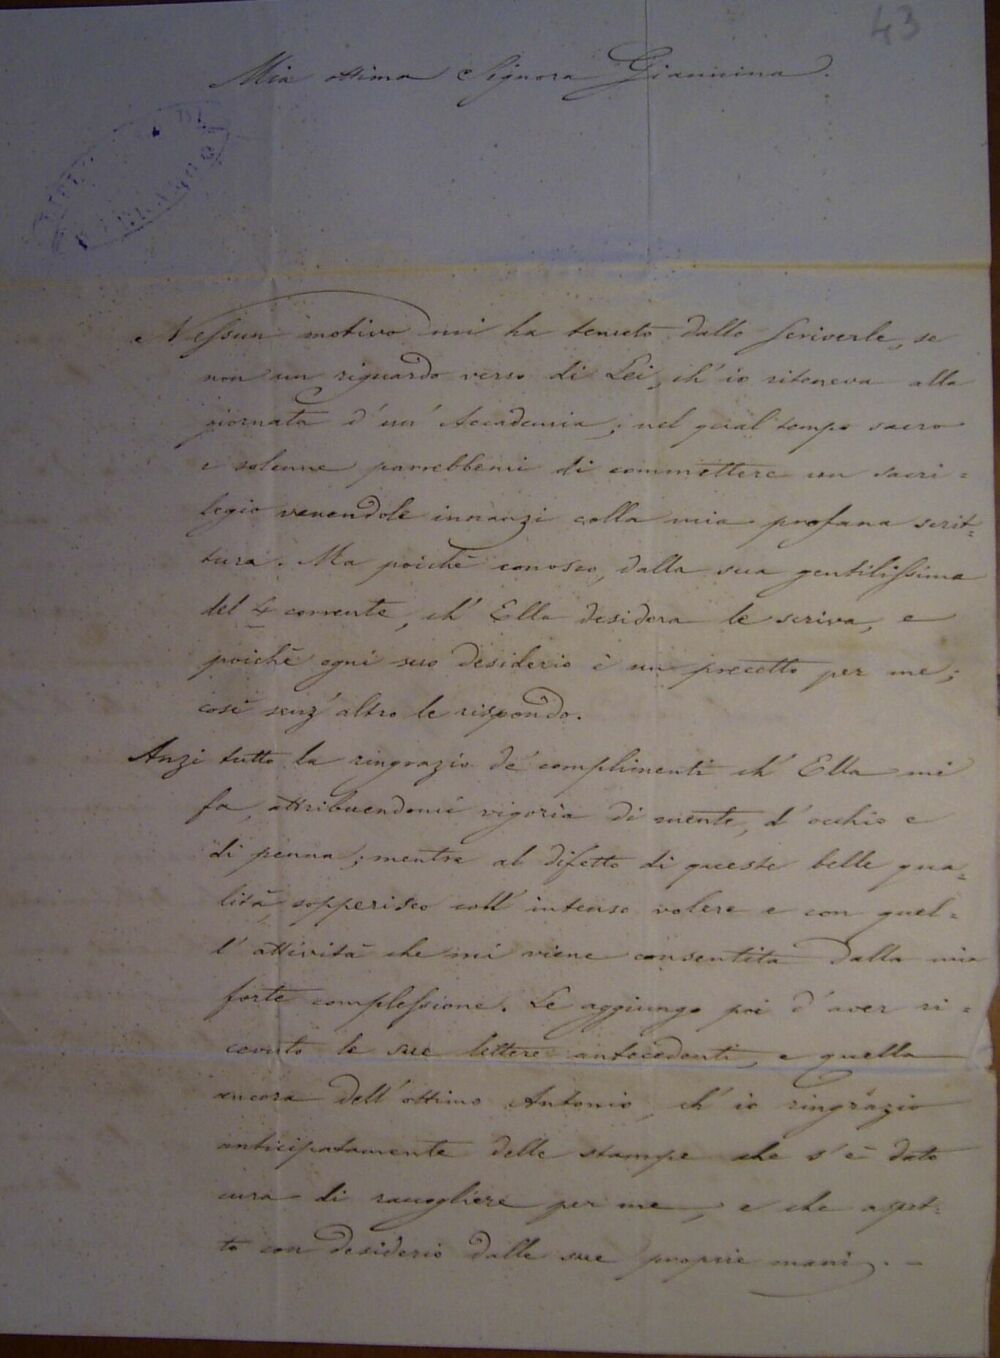 43
Mia ottima Signora Giannina.
Nessun motivo mi ha tenuto dallo scriverle, se
non un riguardo verso di Lei, ch' io riteneva alla
giornata d' un' Accademia; nel qual tempo sacro
e solenne parrebbemi di commettere un sacri=
legio venendole innanzi colla mia profana scrit=
tura. Ma poichè conosco, dalla sua gentilissima
del 4 corrente, ch' Ella desidera le scriva, e
poichè ogni suo desiderio è un precetto per me;
così senz' altro le rispondo.
Anzi tutto la ringrazio de' complimenti ch' Ella mi
fa, attribuendomi vigoria di mente, d' occhio e
di penna; mentre al difetto di queste belle qua=
lità sopperisco coll' intenso volere e con quel=
l' attività che mi viene consentita dalla mia
forte complessione. Le aggiungo poi d' aver ri=
cevuto le sue lettere antecedenti, e quella
ancora dell' ottimo Antonio, ch' io ringrazio
anticipatamente delle stampe che s' è dato
cura di raccogliere per me, e che aspet=
to con desiderio dalle sue proprie mani. -